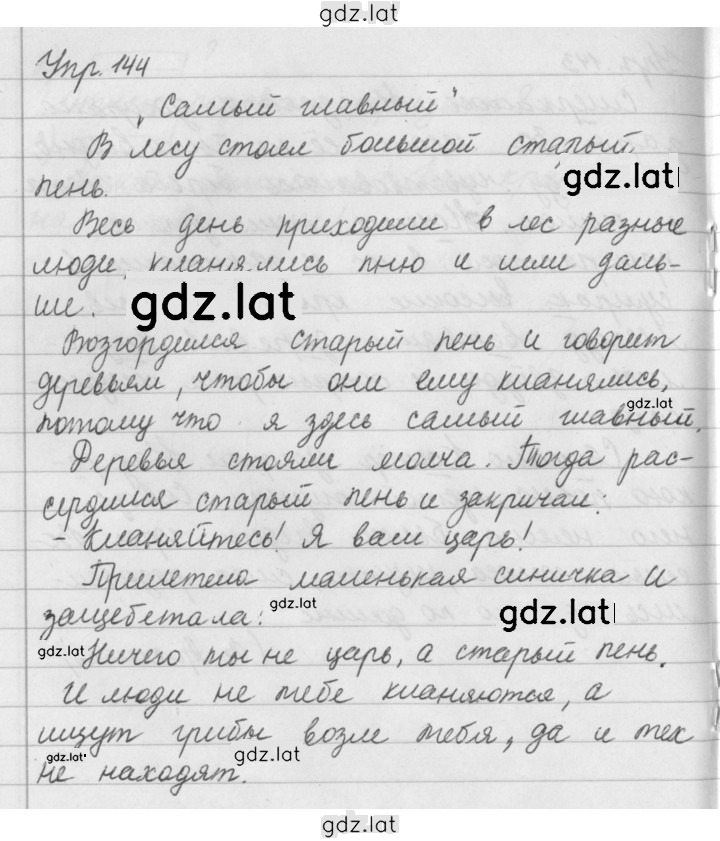 gdz.lat
Упр. 144
"Самый главный"
В лесу стоял большой старый
gdz.lat
пень.
Весь день приходили в лес разные
люди, кланялись пню и шли даль-
ше.
gdz.lat
Возгордился старый пень и говорит
деревьям, чтобы они ему кланялись,
gdz.lat
потому что я здесь самый главный.
Деревья стояли молча. Тогда рас-
сердился старый пень и закричал:
- Кланяйтесь! Я ваш царь!
Прилетела маленькая синичка и
защебетала:
gdz.lat
gdz.lat
gdz.lat
Ничего ты не царь, а старый пень.
И люди не тебе кланяются, а
ищут грибы возле тебя, да и тех
gdz.lat
gdz.lat
не находят.
gdz.lat